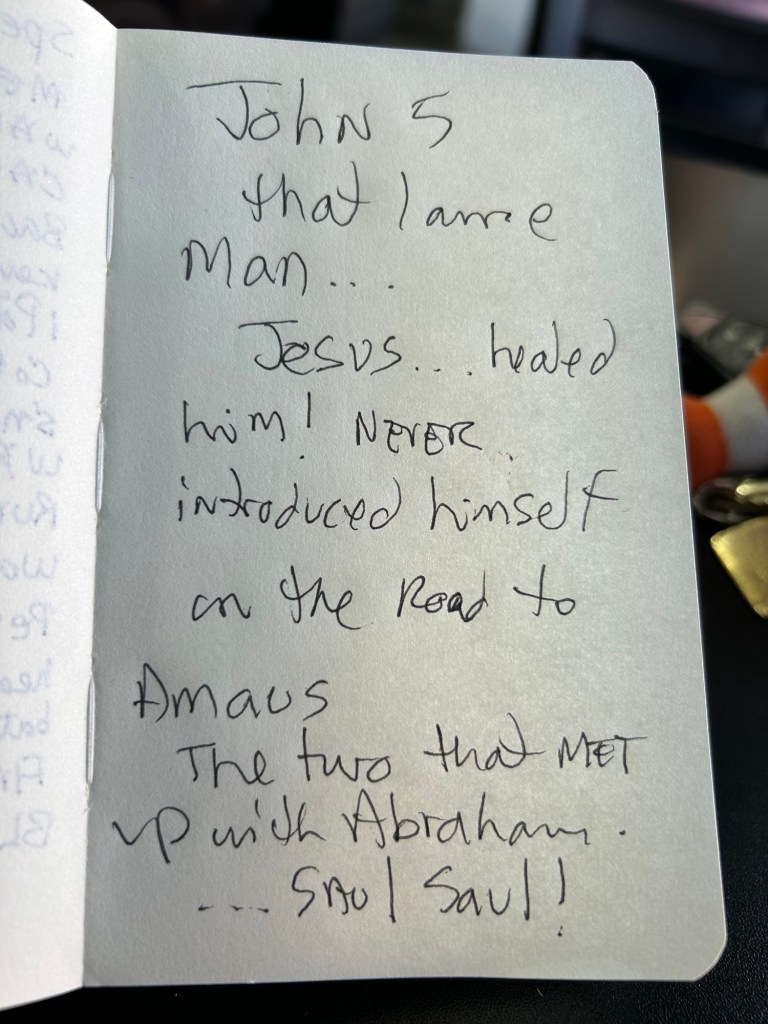 John 5
that lame
Man....
Jesus... healed
him! NEVER
introduced himself
on the Road to
Amaus
The two that MET
up with Abraham.
.... SAul Saul!